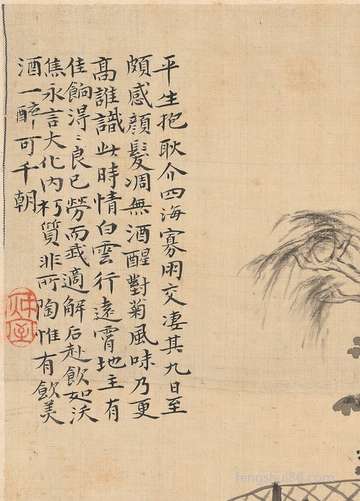 平生抱耿介四海寡朋交淒其九日至
頗感顏髮凋無酒醒對菊風味乃更
高誰識此時情白雲行遠霄地主有
佳餉得〻良已勞而我適解后赴飲如沃
焦永言大化內朽質非所陶惟有飲美
酒一醉可千朝